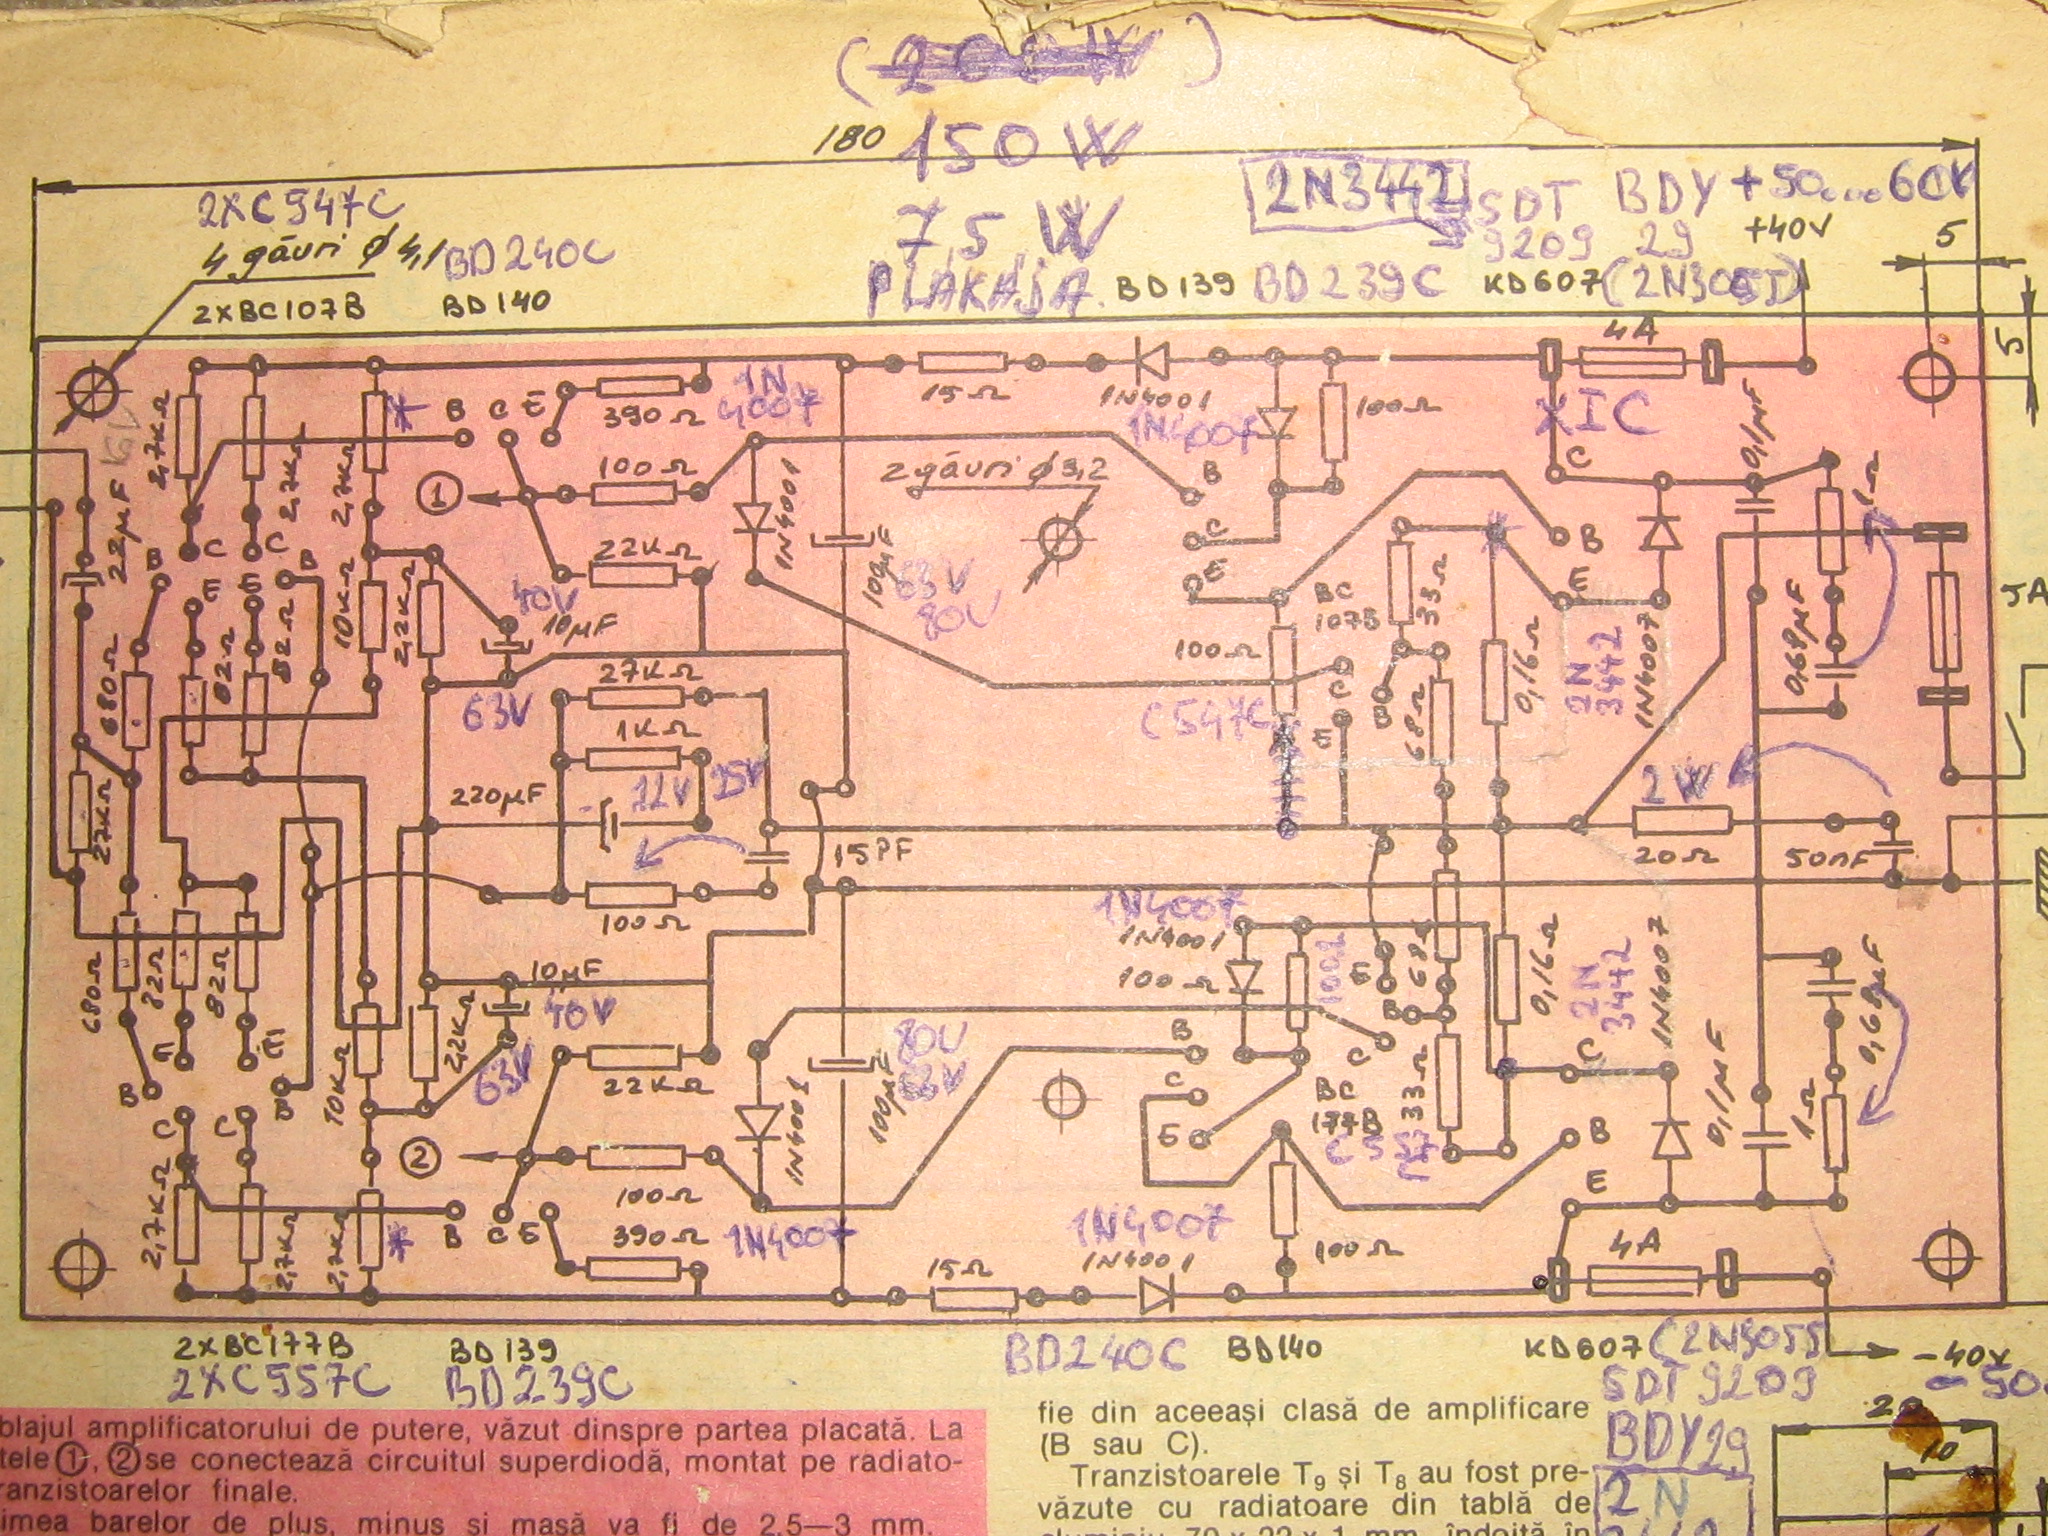 (200W)
180 150W
2N3442 SDT BDY +50...60V
2XC547C 75W 9209 29 +40V 5
4 găuri ϕ 4,1 BD240C
2XBC107B BD140 PLAKAJA BD139 BD239C KD607 (2N3055)
4A
5
15Ω 1N4001
390Ω 1N 4007
B C E
2,7KΩ 2,7KΩ 2,7KΩ *
1N4007 100Ω XIC
C 0,1µF 1Ω
1 100Ω 1N4001 2 găuri ϕ 3,2
B
22µF
C C B
B E E
22KΩ 100µF 63V 80V
C
E
B
E
40V 10µF
10KΩ 2,2KΩ
BC 107B 33Ω
5A
680Ω 82Ω 82Ω
63V
27KΩ
100Ω
C
E
B
68Ω
0,16Ω
2N 3442
1N4007
0,68µF
C547C
1KΩ
12V 25V
220µF
27KΩ
2W
15PF
20Ω 50nF
100Ω
1N4007
1N4001
100Ω
100Ω
E
B
C
68Ω
0,16Ω
2N 3442
1N4007
0,68µF
680Ω 82Ω 82Ω
10µF
40V
63V
10KΩ 2,2KΩ
B E E B
C C
22KΩ
100µF
80V
63V
B
C
E
BC 177B
33Ω
C
B
E
0,1µF
1Ω
2 100Ω 1N4001
2,7KΩ 2,7KΩ 2,7KΩ *
B C E
390Ω 1N4007
1N4007
15Ω 1N4001
100Ω
4A
2XBC177B BD139 BD240C BD140 KD607 (2N3055
2XC557C BD239C SDT 9209 -40V
-50
BDY29
2N
20
10
blajul amplificatorului de putere, văzut dinspre partea placată. La
tele 1, 2 se conectează circuitul superdiodă, montat pe radiato-
ranzistoarelor finale.
imea barelor de plus, minus și masă va fi de 2,5—3 mm.
fie din aceeași clasă de amplificare
(B sau C).
Tranzistoarele T9 și T8 au fost pre-
văzute cu radiatoare din tablă de
aluminiu 70 x 22 x 1 mm, îndoită în